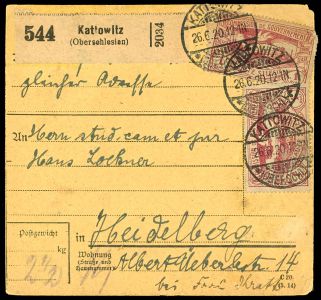 544
Kattowitz
(Oberschlesien)
2034
KATTOWITZ
26.6.20.12-1N
KATTOWITZ
26.6.20.12-1N
KATTOWITZ
gleicher Adresse
An Herrn stud cam et jur
Hans Lockner
in Heidelberg
Postgewicht
kg
Wohnung
(Straße und
Hausnummer)
Albert Ueberlestr 14
bei Frau
C 20